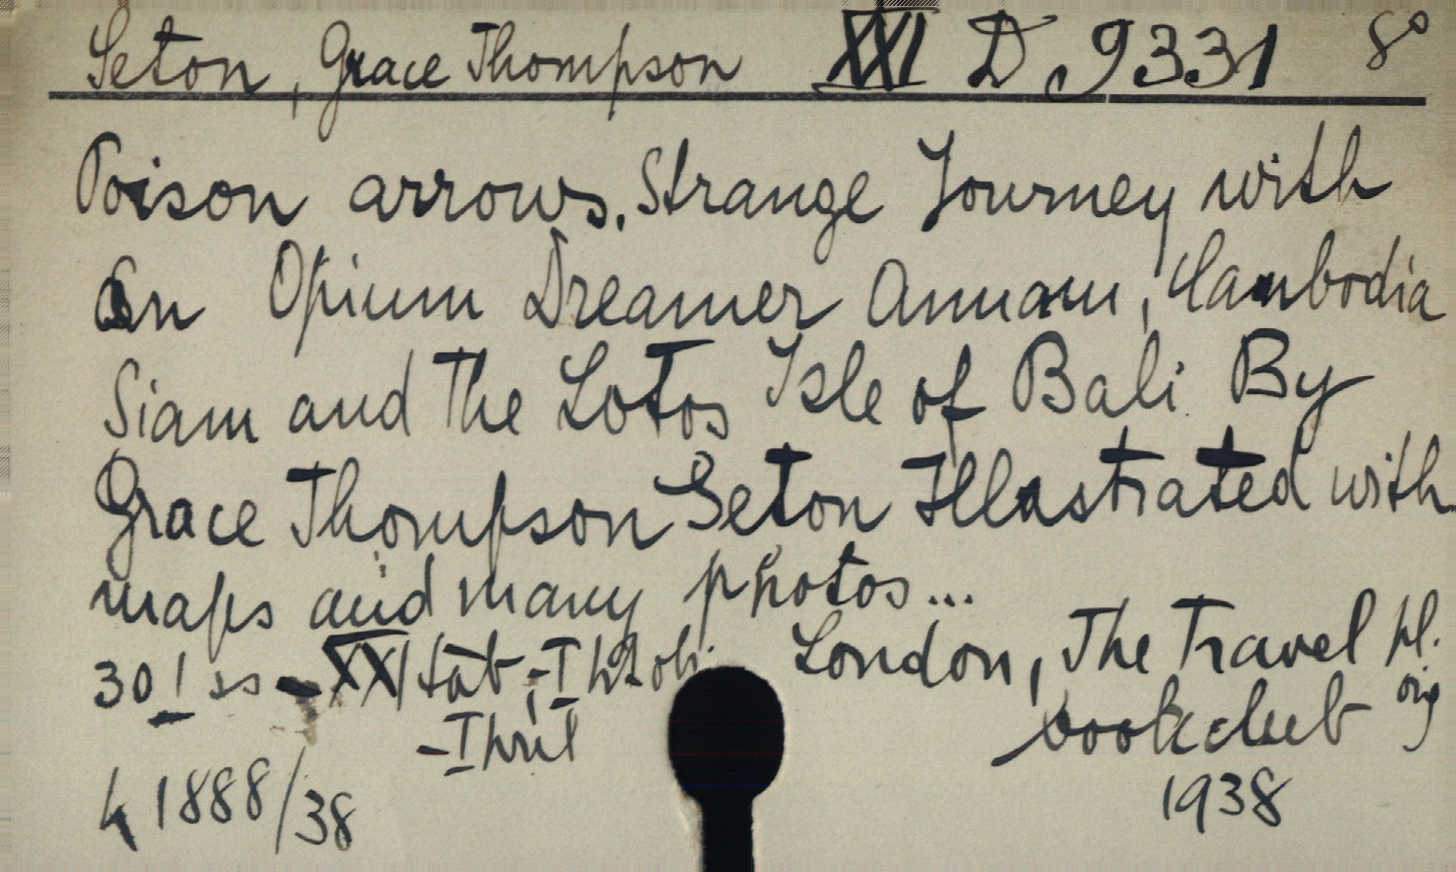 Seton, Grace Thompson XXI D 9331 8°
Poison arrows. Strange Journey with
an Opium Dreamer Annam, Cambodia
Siam and the Lotos Isle of Bali. By
Grace Thompson Seton Illustrated with
maps and many photos...
301 ss - XXI tab, - I
London, The Travel pl.
- I
bookclub orig
1938
h 1888/38